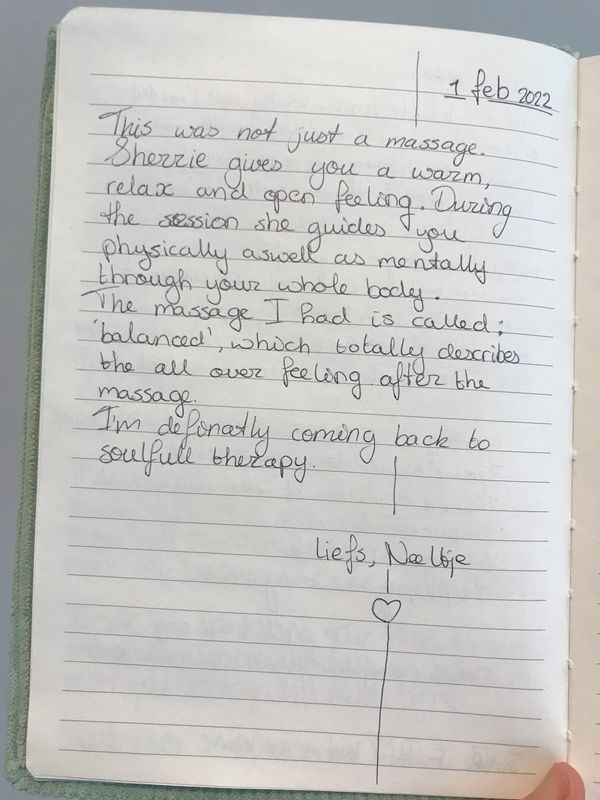 1 feb 2022
This was not just a massage.
Sherrie gives you a warm,
relax and open feeling. During
the session she guides you
physically aswell as mentally
through your whole body.
The massage I had is called:
'balanced', which totally describes
the all over feeling after the
massage.
I'm definatly coming back to
soulfull therapy.
Liefs, Neeltje